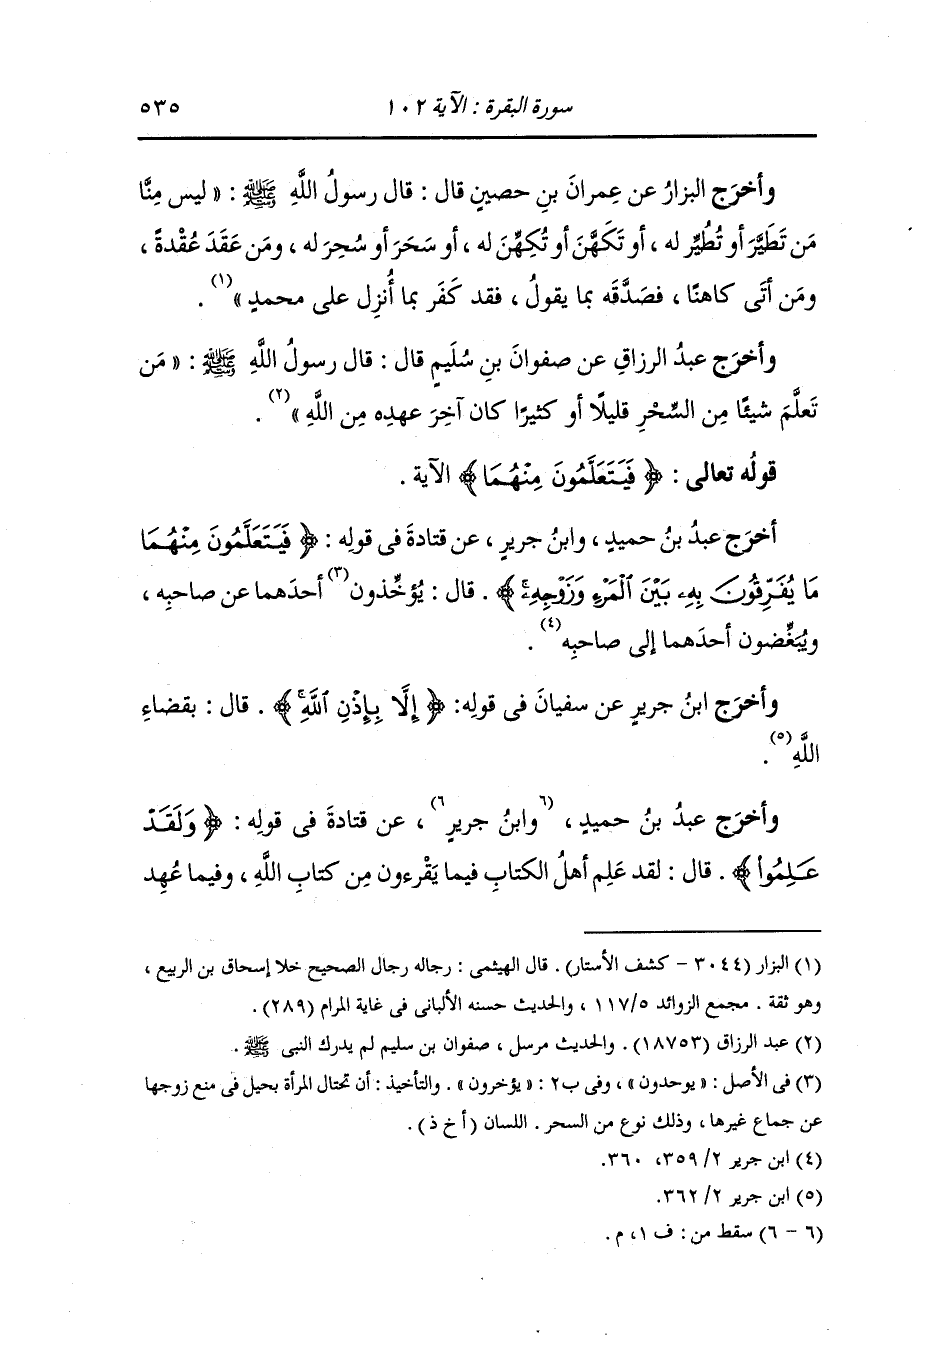 سورة البقرة : الآية ١٠٢
٥٣٥
وأخرَج البزارُ عن عِمرانَ بنِ حصينٍ قال : قال رسولُ اللَّهِ ﷺ : « ليس مِنَّا
مَن تَطَيَّرَ أو تُطُيِّر له ، أو تَكَهَّنَ أو تُكِهِّنَ له ، أو سَحَرَ أو سُحِرَ له ، ومَن عَقَدَ عُقْدةً ،
ومَن أتَى كاهنًا ، فصَدَّقَه بما يقولُ ، فقد كَفَر بما أُنزِل على محمدٍ »(١) .
وأخرَج عبدُ الرزاقِ عن صفوانَ بنِ سُلَيمٍ قال : قال رسولُ اللَّهِ ﷺ : « مَن
تَعلَّمَ شيئًا مِن السِّحْرِ قليلًا أو كثيرًا كان آخِرَ عهدِه مِن اللَّهِ »(٢) .
قولُه تعالى : ﴿ فَيَتَعَلَّمُونَ مِنْهُمَا ﴾ الآية .
أخرَج عبدُ بنُ حميدٍ ، وابنُ جريرٍ ، عن قتادةَ فى قولِه : ﴿ فَيَتَعَلَّمُونَ مِنْهُمَا
مَا يُفَرِّقُونَ بِهِۦ بَيْنَ ٱلْمَرْءِ وَزَوْجِهِۦۚ ﴾ . قال : يُؤخِّذون(٣) أحدَهما عن صاحبِه ،
ويُبَغِّضون أحدَهما إلى صاحبِه(٤) .
وأخرَج ابنُ جريرٍ عن سفيانَ فى قولِه: ﴿ إِلَّا بِإِذْنِ ٱللَّهِۚ ﴾ . قال : بقضاءِ
اللَّهِ(٥) .
وأخرَج عبدُ بنُ حميدٍ ، (٦وابنُ جريرٍ٦) ، عن قتادةَ فى قولِه : ﴿ وَلَقَدْ
عَلِمُوا۟ ﴾ . قال : لقد عَلِم أهلُ الكتابِ فيما يَقْرءون مِن كتابِ اللَّهِ ، وفيما عُهِد
(١) البزار (٣٠٤٤ – كشف الأستار) . قال الهيثمى : رجاله رجال الصحيح خلا إسحاق بن الربيع ،
وهو ثقة . مجمع الزوائد ١١٧/٥ ، والحديث حسنه الألبانى فى غاية المرام (٢٨٩) .
(٢) عبد الرزاق (١٨٧٥٣) . والحديث مرسل ، صفوان بن سليم لم يدرك النبى ﷺ .
(٣) فى الأصل : « يوحدون » ، وفى ب٢ : « يؤخرون » . والتأخيذ : أن تحتال المرأة بحيل فى منع زوجها
عن جماع غيرها ، وذلك نوع من السحر . اللسان (أ خ ذ) .
(٤) ابن جرير ٢/ ٣٥٩، ٣٦٠.
(٥) ابن جرير ٢/ ٣٦٢.
(٦ – ٦) سقط من : ف ١، م .